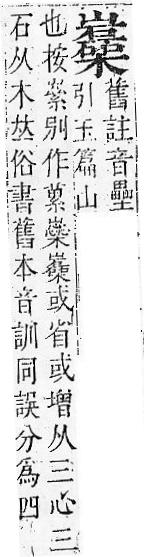 舊註音壘
引玉篇山
也按別作或省或增从三心三
石从木𠀤俗書舊本音訓同誤分爲四